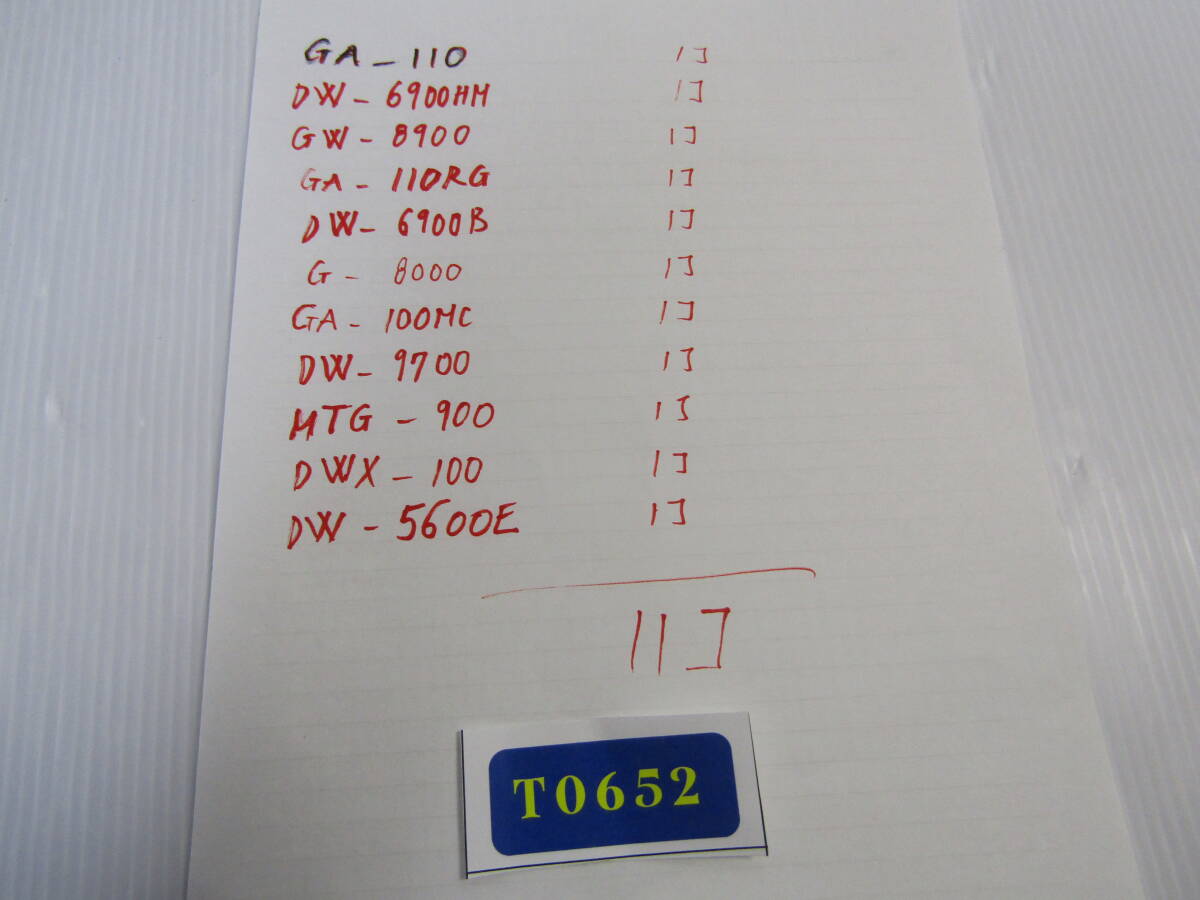 GA-110 1コ
DW-6900HM 1コ
GW-8900 1コ
GA-110RG 1コ
DW-6900B 1コ
G-8000 1コ
GA-100MC 1コ
DW-9700 1コ
MTG-900 1コ
DWX-100 1コ
DW-5600E 1コ
11コ
T0652